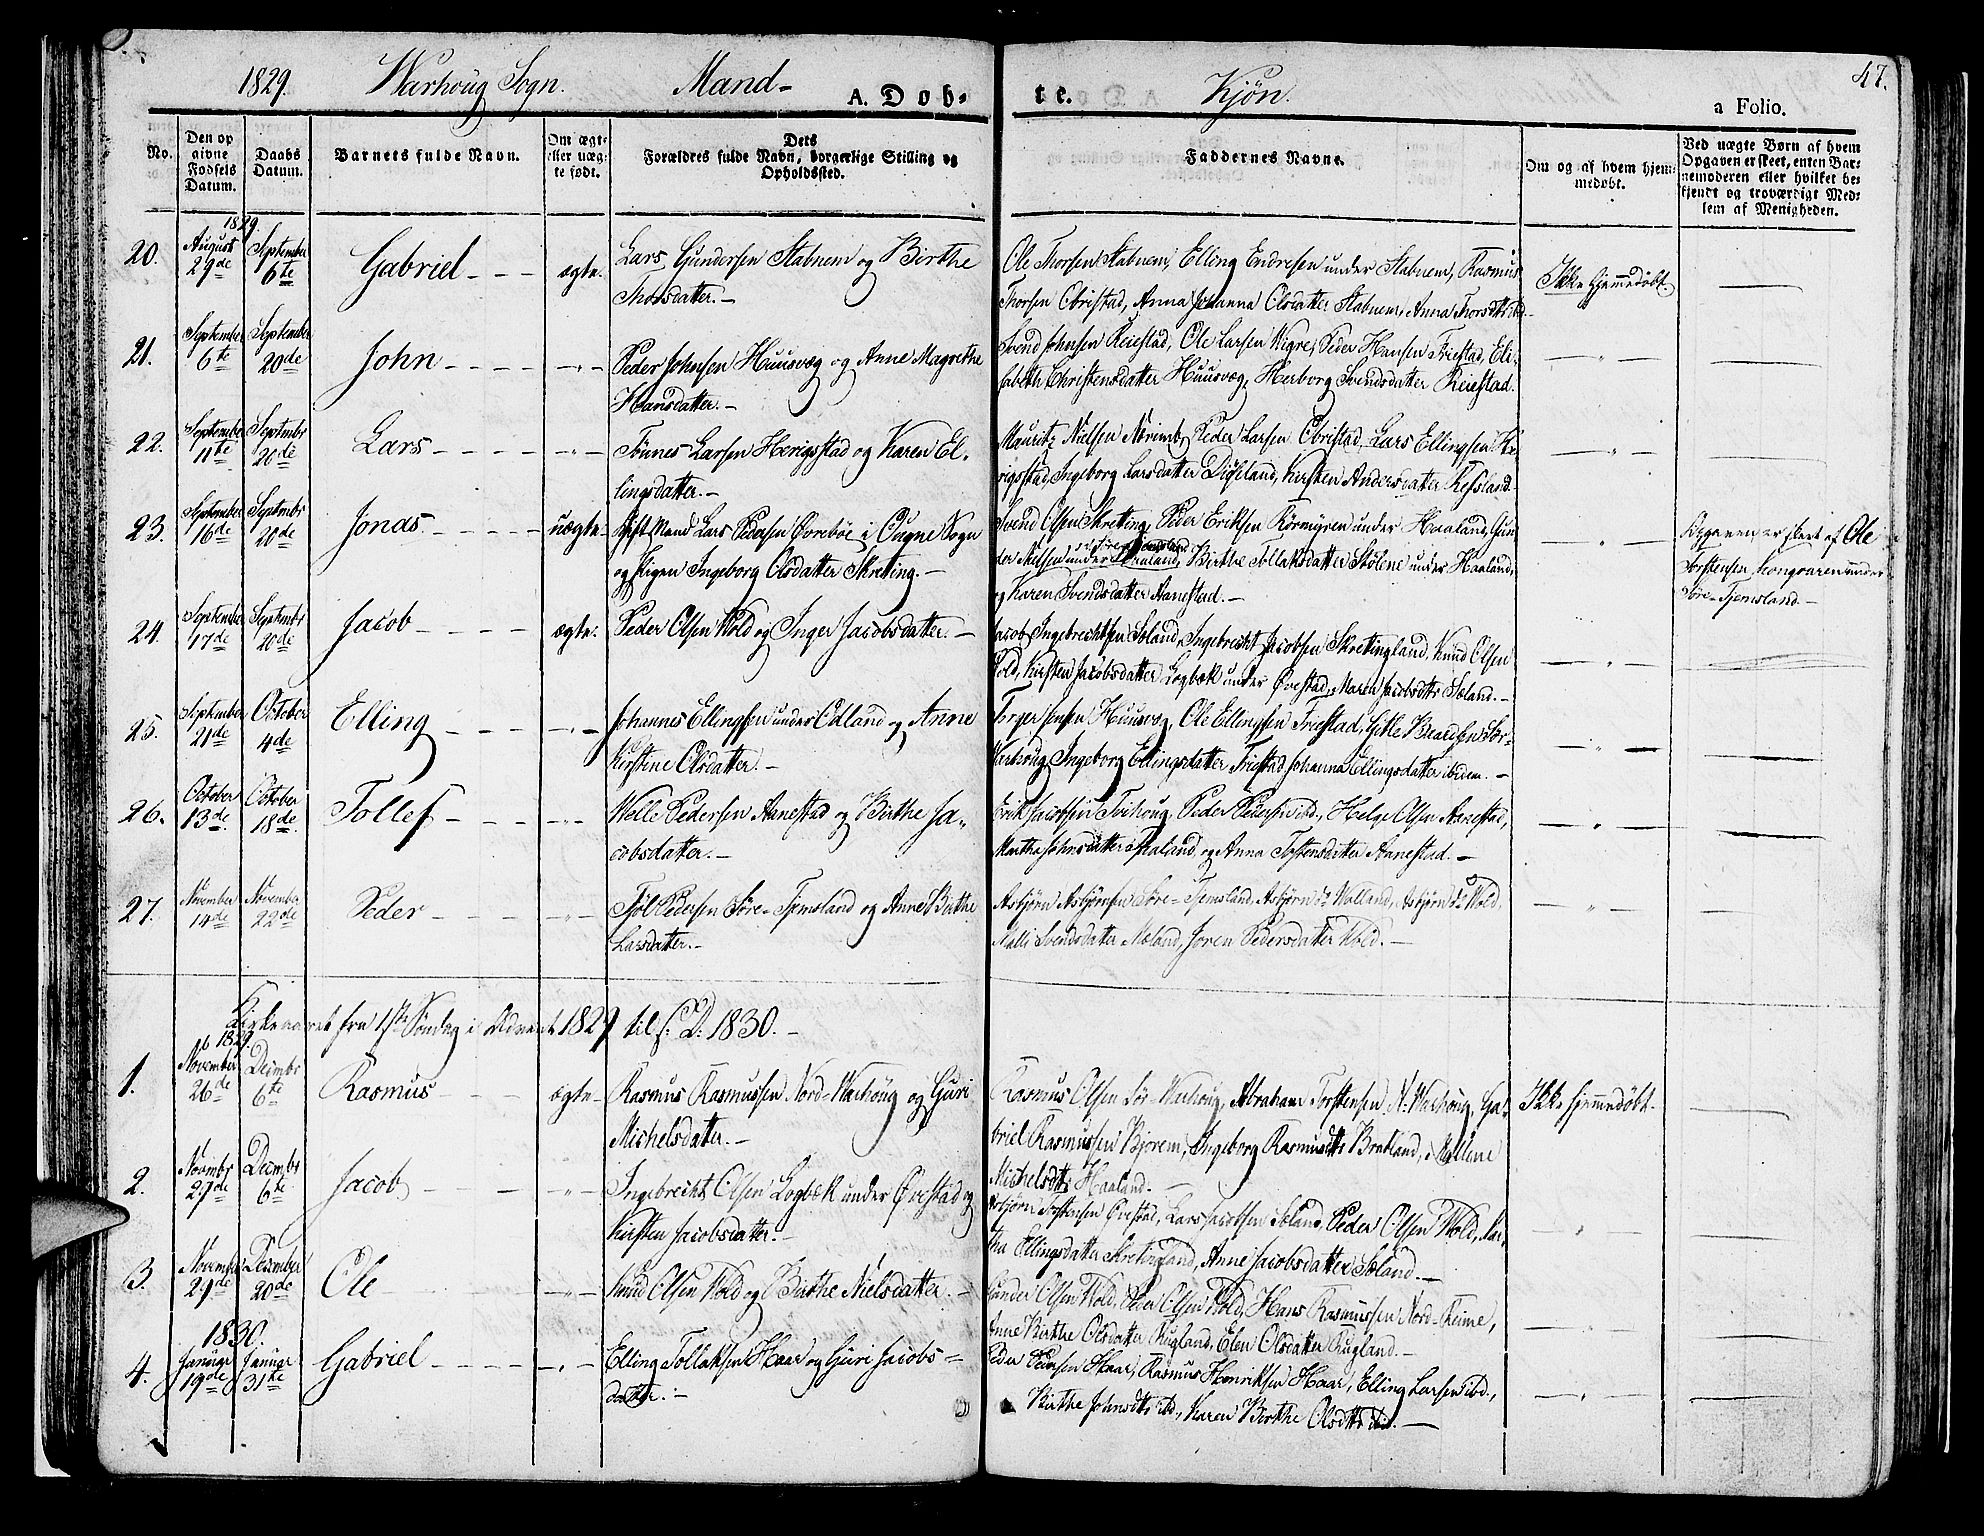 47.
1829. Warhoug Sogn. Mand- A. Dob-
te. Kjøn. a Folio.
No.
Den opgivne Fødsels Datum.
Daabs Datum.
Barnets fulde Navn.
Om ægte eller uægte født.
Dets Forældres fulde Navn, borgerlige Stilling og Opholdssted.
Faddernes Navne.
Om og af hvem hjemmedøbt.
Ved uægte Børn af hvem
Opgaven er skeet, enten Bar-
nemoderen eller hvilket be-
kjendt og troværdigt Med-
lem af Menigheden.
1829
20. August 29de September 6te Gabriel ægte. Lars Gundersen Stabnem og Birthe
Thorsdatter.-
Ole Thorsen Stabnem, Elling Endresen under Stabnem, Rasmus
Thorsen Obristad, Anna Johanna Olsdatter Stabnem, Anna Thorsdtr ibd.
Ikke hjemmedøbt.
21. September 6te September 20de John -"- Peder Johnsen Huusvæg og Anne Magrethe
Hansdatter.-
Svend Johnsen Reiestad, Ole Larsen Wigre, Peder Hansen Friestad, Eli-
sabeth Christensdatter Huusvæg, Herborg Svendsdatter Reiestad.
22. September 11te Septembr 20de Lars -"- Tønnes Larsen Herigstad og Karen El-
lingsdatter.-
Mauritz Nielsen Nærimb, Peder Larsen Obristad, Lars Ellingsen He-
rigstad, Ingeborg Larsdatter Diøseland, Kirsten Andersdatter Refsland.
23. September 16de Septembr 20de Jonas. uægte. Gift Mand Lars Pedersen Ørrebøe i Ougne Sogn
og Pigen Ingeborg Olsdatter Skreting.-
Svend Olsen Skreting, Peder Eriksen Rørmyren under Haaland, Gun-
der Nielsen under Haaland, Birthe Tollaksdatter Stølene under Haaland,
og Karen Svendsdatter Aanestad.-
Opgaven er skeet af Ole
Torstensen Kongvaren under
Søre-Tjemsland.-
24. September 17de Septembr 20de Jacob ægte. Peder Olsen Wold og Inger Jacobsdatter.-
Jacob Ingebrechtsen Søland, Ingebrecht Jacobsen Skretingland, Knud Olsen
Wold, Kirsten Jacobsdatter Logbæk under Øvestad, Maren Jacobsdtr Søland.-
25. September 21de October 4de Elling -"- Johannes Ellingsen under Odland og Anne
Kirstine Olsdatter.-
Torger Jensen Huusvæg, Ole Ellingsen Friestad, Gitle Beardsen Sør-
Warhoug, Ingeborg Ellingsdatter Friestad, Johanna Ellingsdatter ibidem.-
26. October 13de. October 18de. Tollef -"- Welle Pedersen Aanestad og Birthe Ja-
cobsdatter.-
Erik Jacobsen Tvihoug, Peder Pedersen ibd., Helge Olsen Aanestad,
Martha Johnsdatter Haaland, og Anna Tostensdatter Aanestad.-
27. November 14de November 22de Peder -"- Tjøl Pedersen Søre-Tjemsland og Anne Birthe
Larsdatter.-
Asbjørn Asbjørnsen Søre-Tjemsland, Asbjørn do Walland, Asbjørn do Wold,
Malli Svendsdatter Mæland, Joren Pedersdatter Wold.-
Kirkeaaret fra 1ste Søndag i Advent 1829 til s: D: 1830.-
1829.
1. November 26de Decmbr 6te Rasmus ægte- Rasmus Rasmussen Nord-Warhoug og Guri
Michelsdatter.-
Rasmus Olsen Sør-Warhoug, Abraham Torstensen N. Warhoug, Ga-
briel Rasmussen Bjorem, Ingeborg Rasmusdtr Bratland, Mallene
Michelsdtr Haaland.-
Ikke hjemmedøbt.
2. Novmbr 27de Decmbr 6te Jacob -"- Ingebrecht Olsen Logbæk under Øvestad og
Kirsten Jacobsdatter.-
Asbjørn Tostensen Øvestad, Lars Jacobsen Søland, Peder Olsen Wold, Mar-
tha Ellingsdatter Skretingland, Anne Jacobsdatter Søland.-
3. November 29de December 20de Ole -"- Knud Olsen Wold og Birthe Nielsdatter.-
Gunder Olsen Wold, Peder Olsen Wold, Hans Rasmussen Nord-Reime,
Anne Birthe Olsdatter Rugland, Elen Olsdatter Rugland.-
1830.
4. Januar 19de Januar 31te Gabriel -"- Elling Tollaksen Haar og Guri Jacobs-
datter.-
Peder Pedersen Haar, Rasmus Henriksen Haar, Elling Larsen ibd.,
Birthe Johnsdtr ibd., Karen Birthe Olsdtr ibd.-